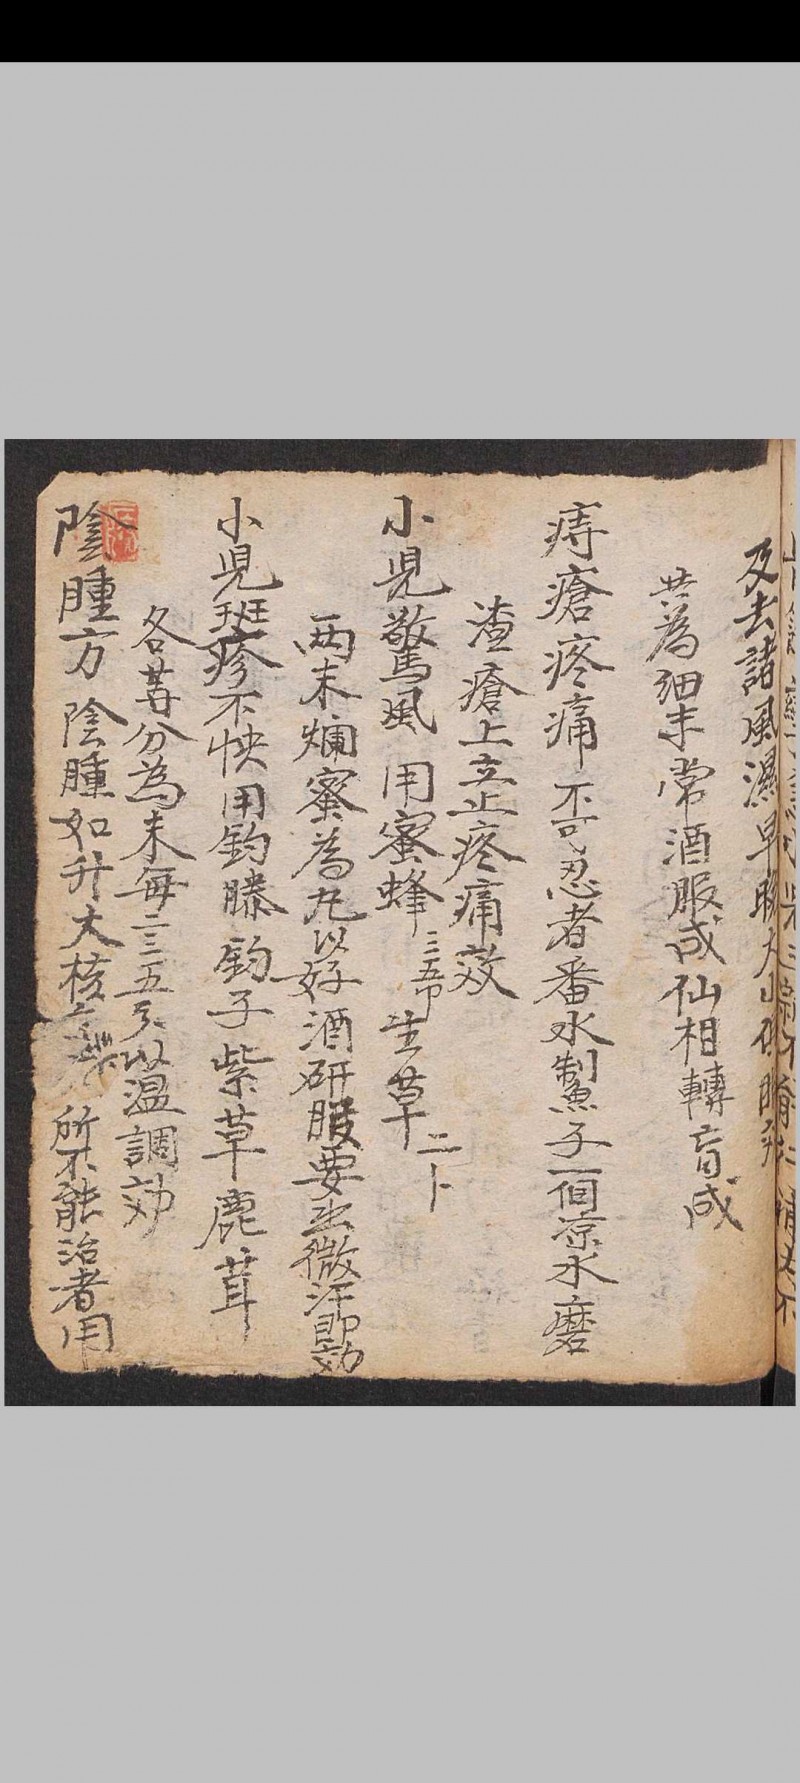 及去諸風濕早晚大
共為細末常酒服成仙相轉盲成
痔瘡疼痛 不可忍者番水鱉子一個凉水磨
渣瘡上立止疼痛效
小児驚風 用蜜蜂三五個 生草二卜
两末爛蜜為丸以好酒研服要出微汗即効
小児班疹不快用鈎滕鈎子紫草鹿茸
各等分為末每二三五分以溫調効
陰腫方 陰腫如升大核 所不能治者用